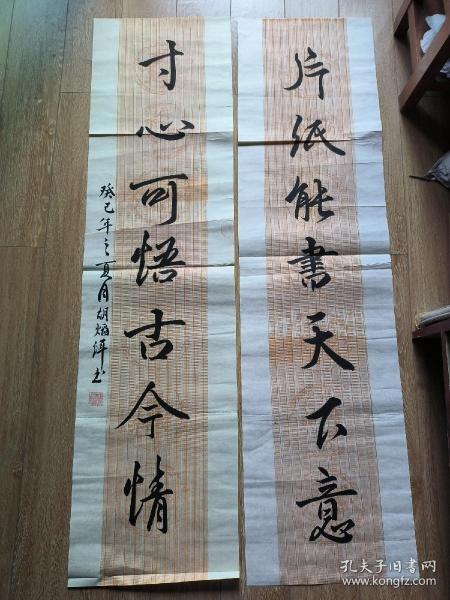 片纸能书天下意
寸心可悟古今情
癸巳年之夏月胡炳泽书
孔夫子旧书网
www.kongfz.com